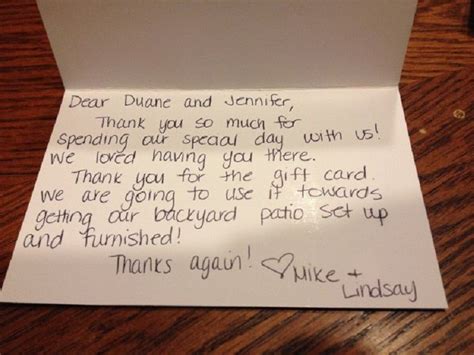 Dear Duane and Jennifer,
Thank you so much for
spending our special day with us!
We loved having you there.
Thank you for the gift card.
We are going to use it towards
getting our backyard patio set up
and furnished!
Thanks again! ♡Mike +
Lindsay